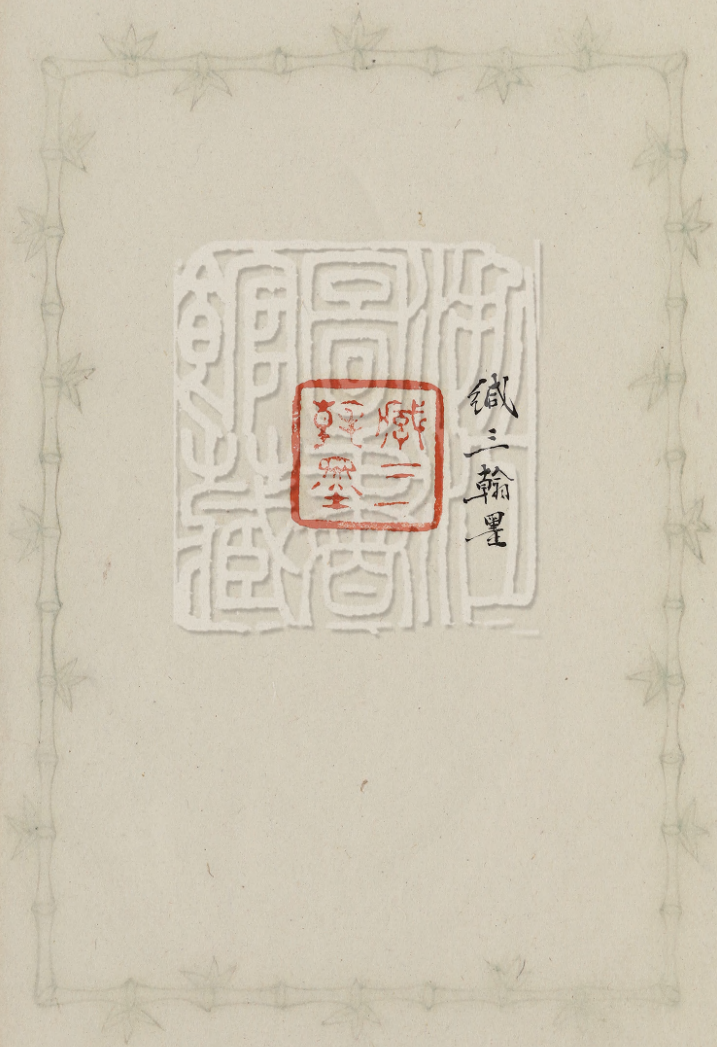 緘三翰墨
緘三
翰墨
浙江
圖書
館藏